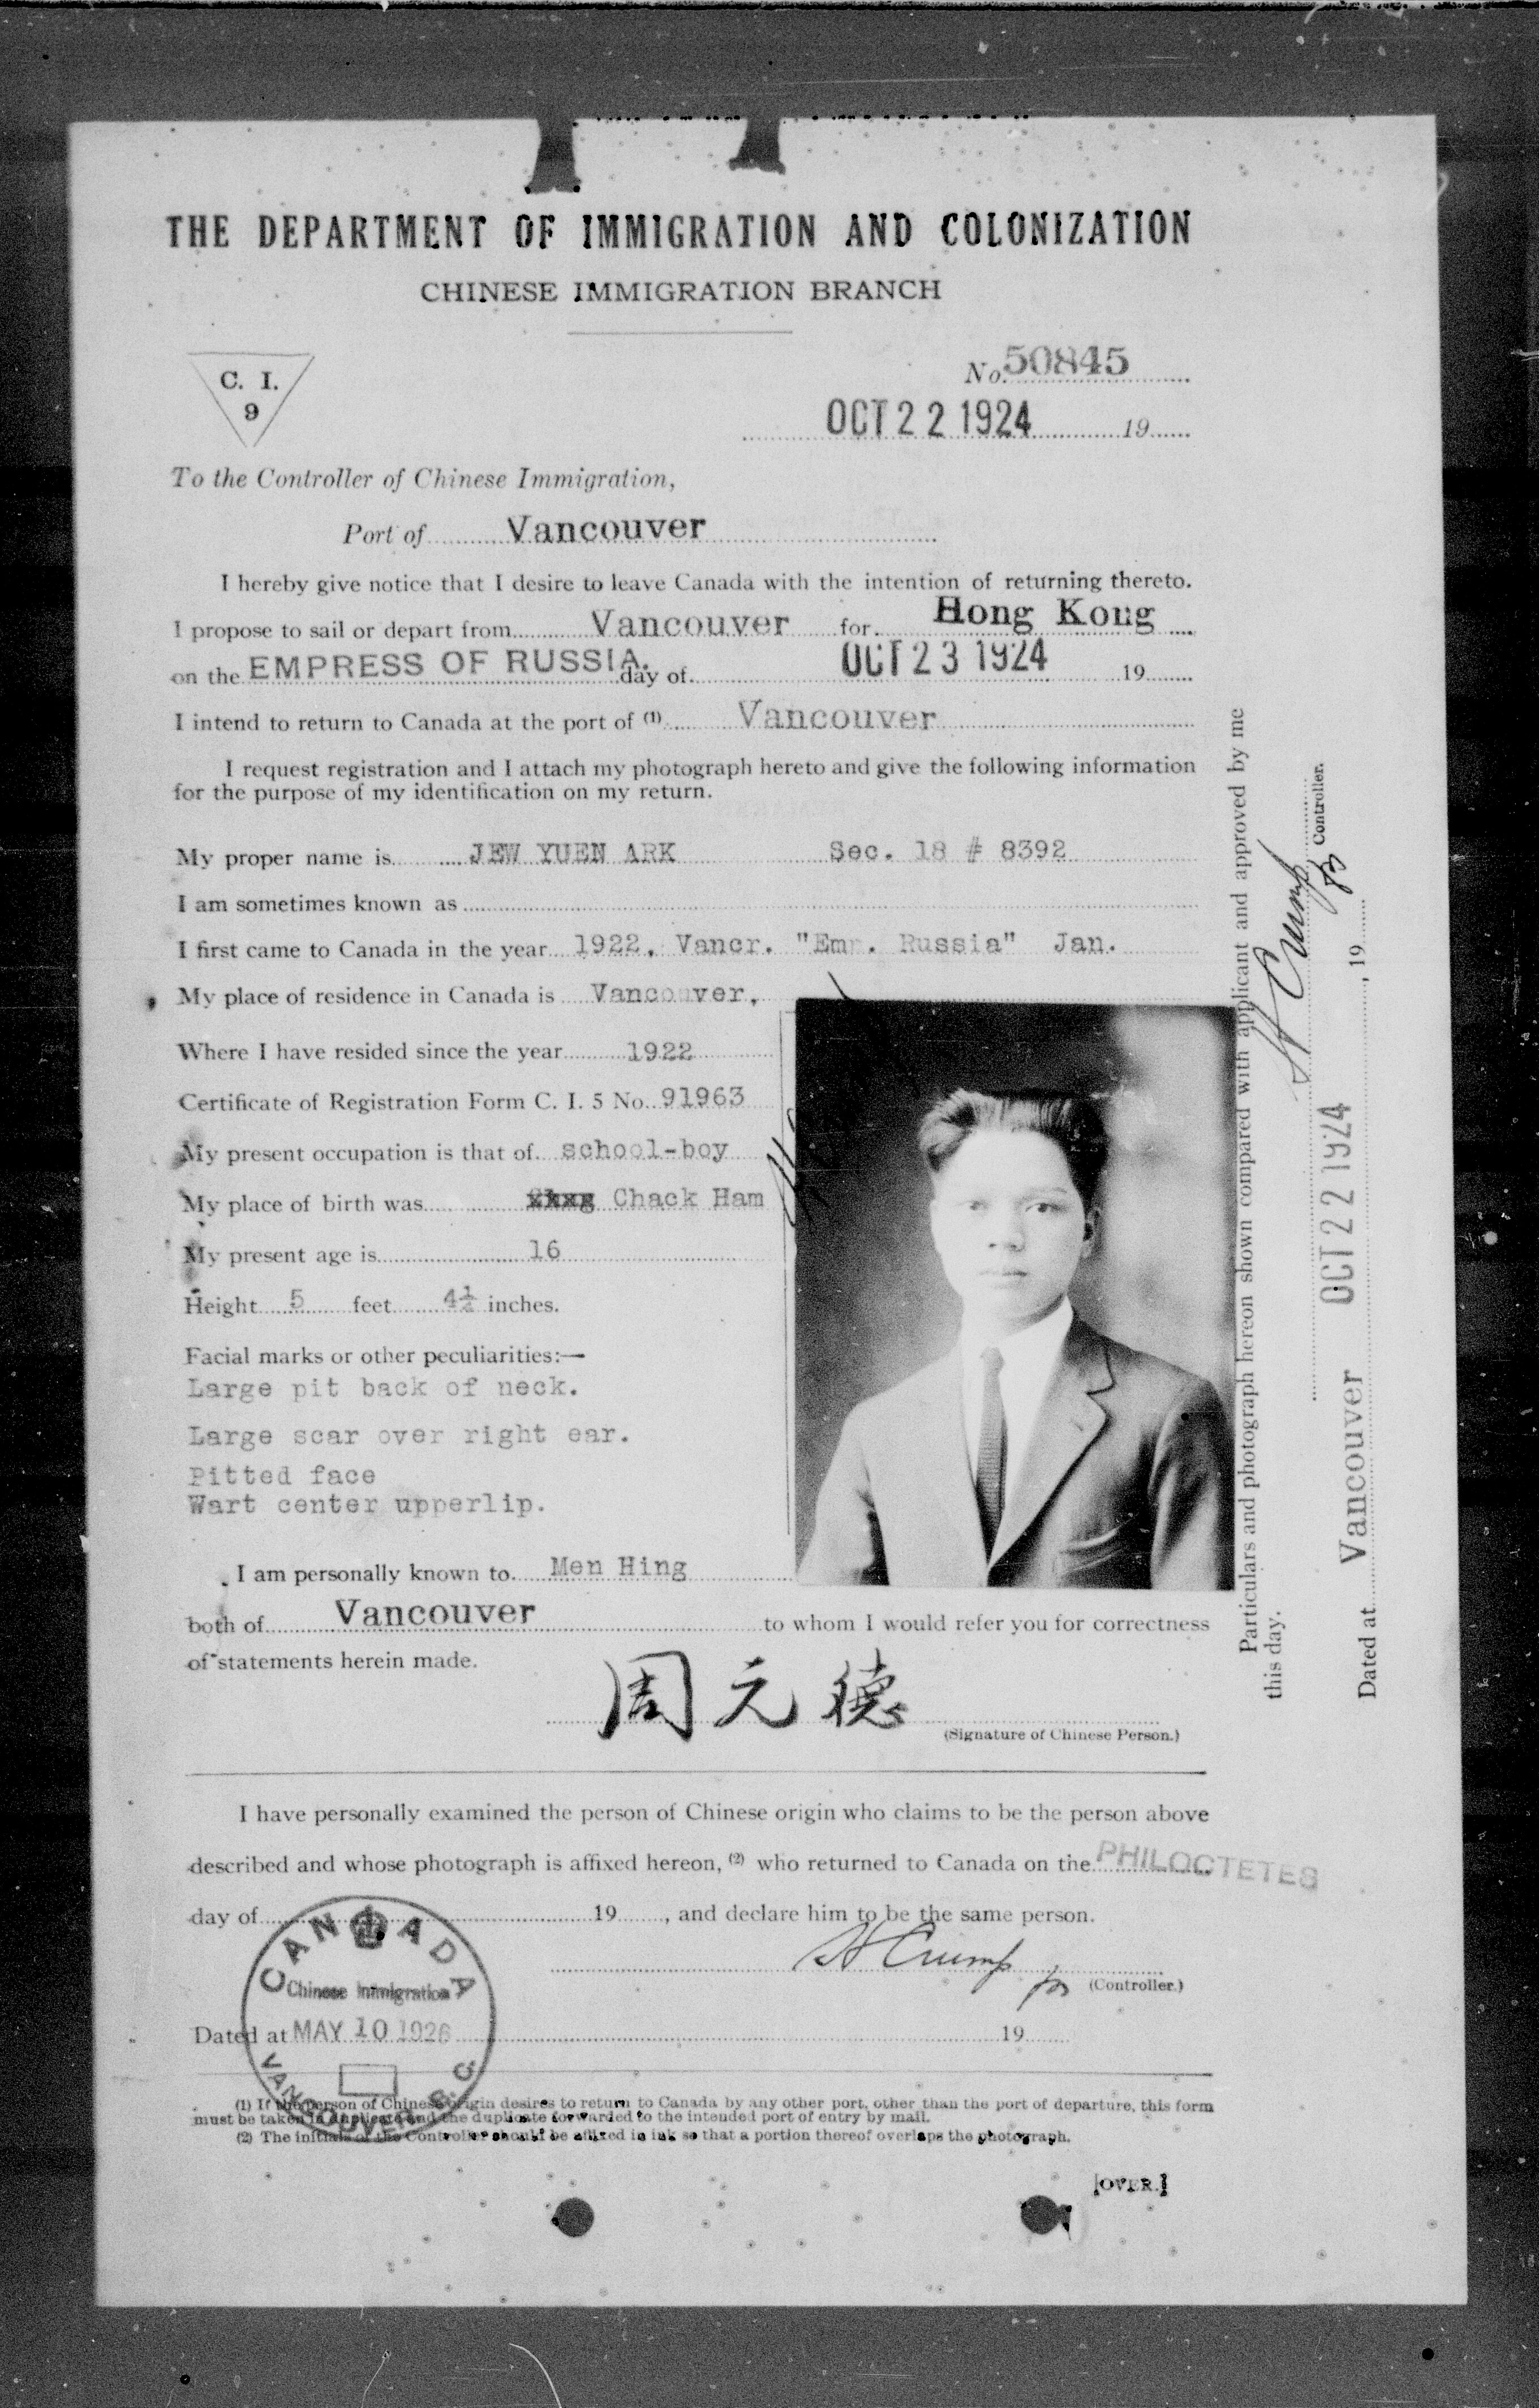 THE DEPARTMENT OF IMMIGRATION AND COLONIZATION
CHINESE IMMIGRATION BRANCH
C. I.
9
No. 50845
OCT 22 1924 19
To the Controller of Chinese Immigration,
Port of Vancouver
I hereby give notice that I desire to leave Canada with the intention of returning thereto.
I propose to sail or depart from Vancouver for Hong Kong
on the EMPRESS OF RUSSIA. day of OCT 23 1924 19
I intend to return to Canada at the port of (1) Vancouver
I request registration and I attach my photograph hereto and give the following information
for the purpose of my identification on my return.
My proper name is JEW YUEN ARK Sec. 18 # 8392
I am sometimes known as
I first came to Canada in the year 1922, Vancr. "Emp. Russia" Jan.
My place of residence in Canada is Vancouver,
Where I have resided since the year 1922
Certificate of Registration Form C. I. 5 No. 91963
My present occupation is that of school-boy
My place of birth was Chack Ham
My present age is 16
Height 5 feet 4½ inches.
Facial marks or other peculiarities:—
Large pit back of neck.
Large scar over right ear.
Pitted face
Wart center upperlip.
I am personally known to Men Hing
both of Vancouver to whom I would refer you for correctness
of statements herein made.
周元德
(Signature of Chinese Person.)
I have personally examined the person of Chinese origin who claims to be the person above
described and whose photograph is affixed hereon, (2) who returned to Canada on the PHILOCTETES
day of 19, and declare him to be the same person.
A Crump for (Controller.)
Dated at MAY 10 1926 19
CANADA
Chinese Immigration
VANCOUVER B.C.
(1) If the person of Chinese origin desires to return to Canada by any other port, other than the port of departure, this form
must be taken in duplicate and the duplicate forwarded to the intended port of entry by mail.
(2) The initials of the Controller should be affixed in ink so that a portion thereof overlaps the photograph.
[OVER.]
Particulars and photograph hereon shown compared with applicant and approved by me
this day.
A Crump for Controller.
Dated at Vancouver OCT 22 1924, 19